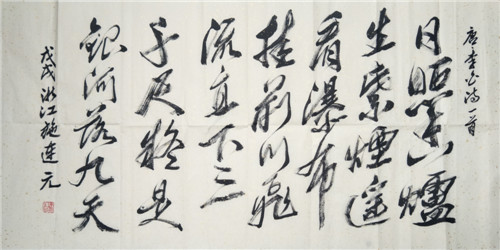 唐李白诗一首
日照香爐
生紫煙遥
看瀑布
挂前川飛
流直下三
千尺疑是
銀河落九天
戊戌浙江施连元